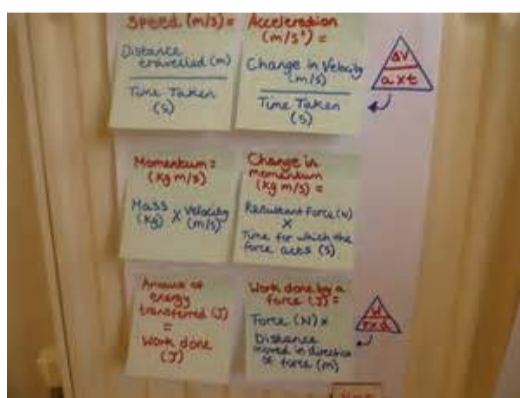 Speed (m/s) =
Distance
travelled (m)
Time Taken
(s)
Acceleration
(m/s²) =
Change in Velocity
(m/s)
Time Taken
(s)
ΔV
a x t
Momentum =
(Kg m/s)
Mass x Velocity
(Kg) (m/s)
Change in
momentum
(Kg m/s) =
Resultant Force (N)
x
Time for which the
force acts (s)
Amount of
energy
transferred (J)
=
Work done
(J)
Work done by a
force (J) =
Force (N) x
Distance
moved in direction
of force (m)
W
F x d